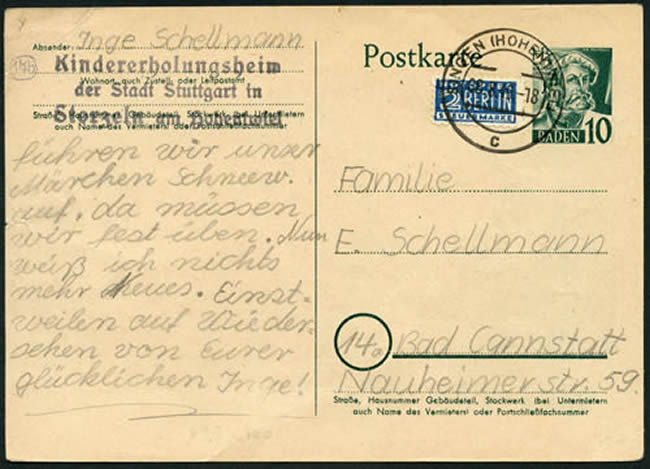 Absender: Inge Schellmann
14b
Kindererholungsheim
Wohnort, auch Zustell- oder Leitpostamt
der Stadt Stuttgart in
Storzeln am Hohentwiel
Straße, Hausnummer, Gebäudeteil, Stockwerk (bei Untermietern
auch Name des Vermieters) oder Postschließfachnummer
führen wir unser
Märchen Schneew.
auf, da müssen
wir fest üben. Nun
weiß ich nichts
mehr Neues. Einst-
weilen auf Wieder-
sehen von Eurer
glücklichen Inge!
Postkarte
SINGEN (HOHENTWIEL)
-18
c
NOTOPFER
2 BERLIN
STEUERMARKE
BADEN 10
Familie
E. Schellmann
14a Bad Cannstatt
Nauheimerstr. 59.
Straße, Hausnummer, Gebäudeteil, Stockwerk (bei Untermietern
auch Name des Vermieters) oder Postschließfachnummer